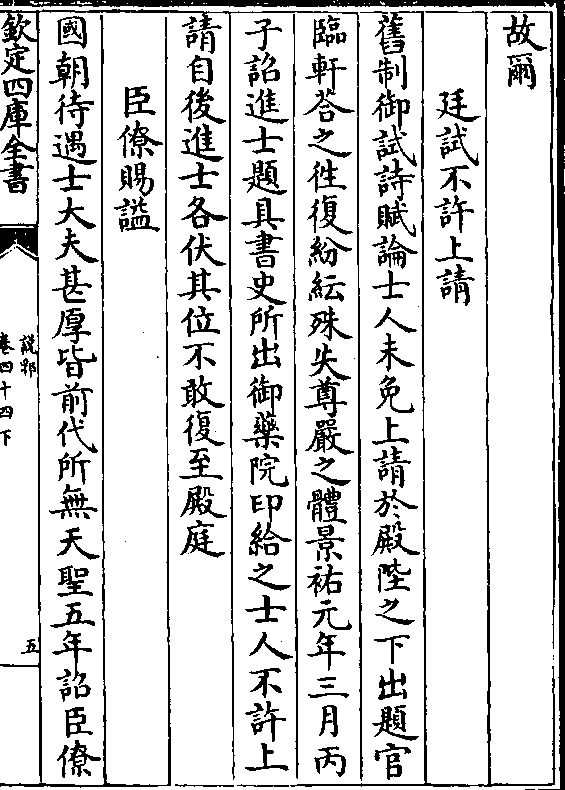 故爾
廷試不許上請
舊制御試詩賦論士人未免上請於殿陛之下出題官
臨軒荅之徃復紛紜殊失尊嚴之體景祐元年三月丙
子詔進士題具書史所出御藥院印給之士人不許上
請自後進士各伏其位不敢復至殿庭
臣僚賜謚
國朝待遇士大夫甚厚皆前代所無天聖五年詔臣僚
欽定四庫全書
說郛
卷四十四下
五